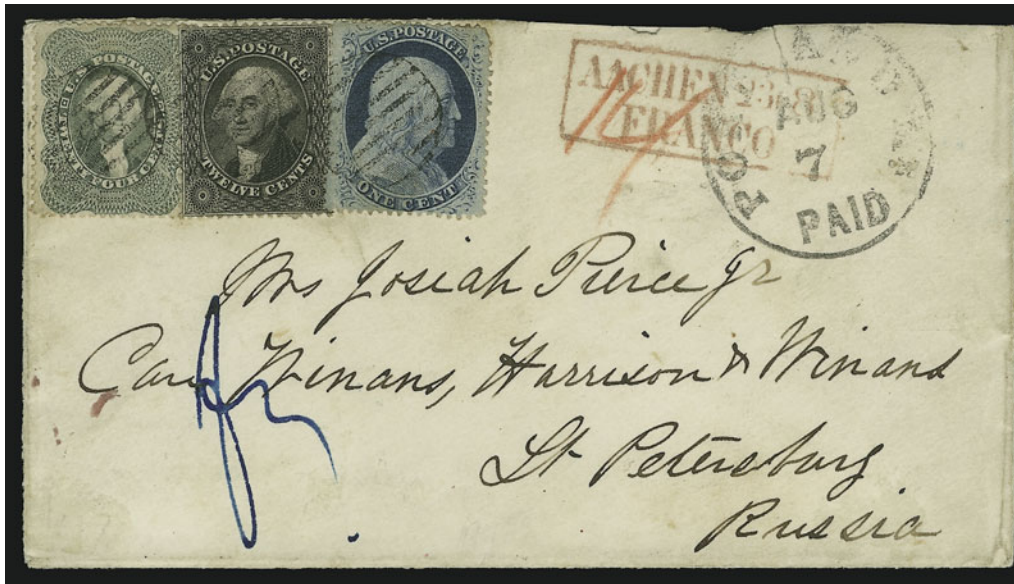 U.S. POSTAGE
TWENTY FOUR CENTS
U.S. POSTAGE
TWELVE CENTS
U.S. POSTAGE
ONE CENT
AACHEN 23 8
FRANCO
AUG
7
PAID
Mrs Josiah Pierce Jr
Care Winans, Harrison & Winans
St Petersburg
Russia